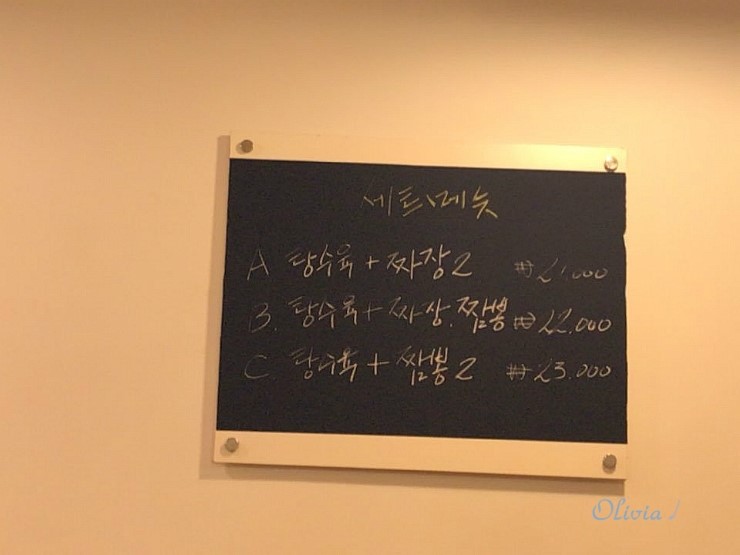 세트메뉴
A 탕수육 + 짜장2 ₩21.000
B. 탕수육 + 짜장.짬뽕 ₩22.000
C. 탕수육 + 짬뽕2 ₩23.000
Olivia!